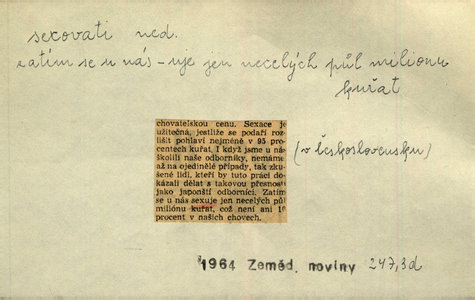 sexovati ned.
zatím se u nás -uje jen necelých půl milionu
kuřat
(v Československu)
chovatelskou cenu. Sexace je
užitečná, jestliže se podaří roz-
lišit pohlaví nejméně v 95 pro-
centech kuřat. I když jsme u nás
školili naše odborníky, nemáme
až na ojedinělé případy, tak zku-
šené lidi, kteří by tuto práci do-
kázali dělat s takovou přesností
jako japonští odborníci. Zatím
se u nás sexuje jen necelých půl
miliónu kuřat, což není ani 10
procent v našich chovech.
1964 Zeměd. noviny 247,3d